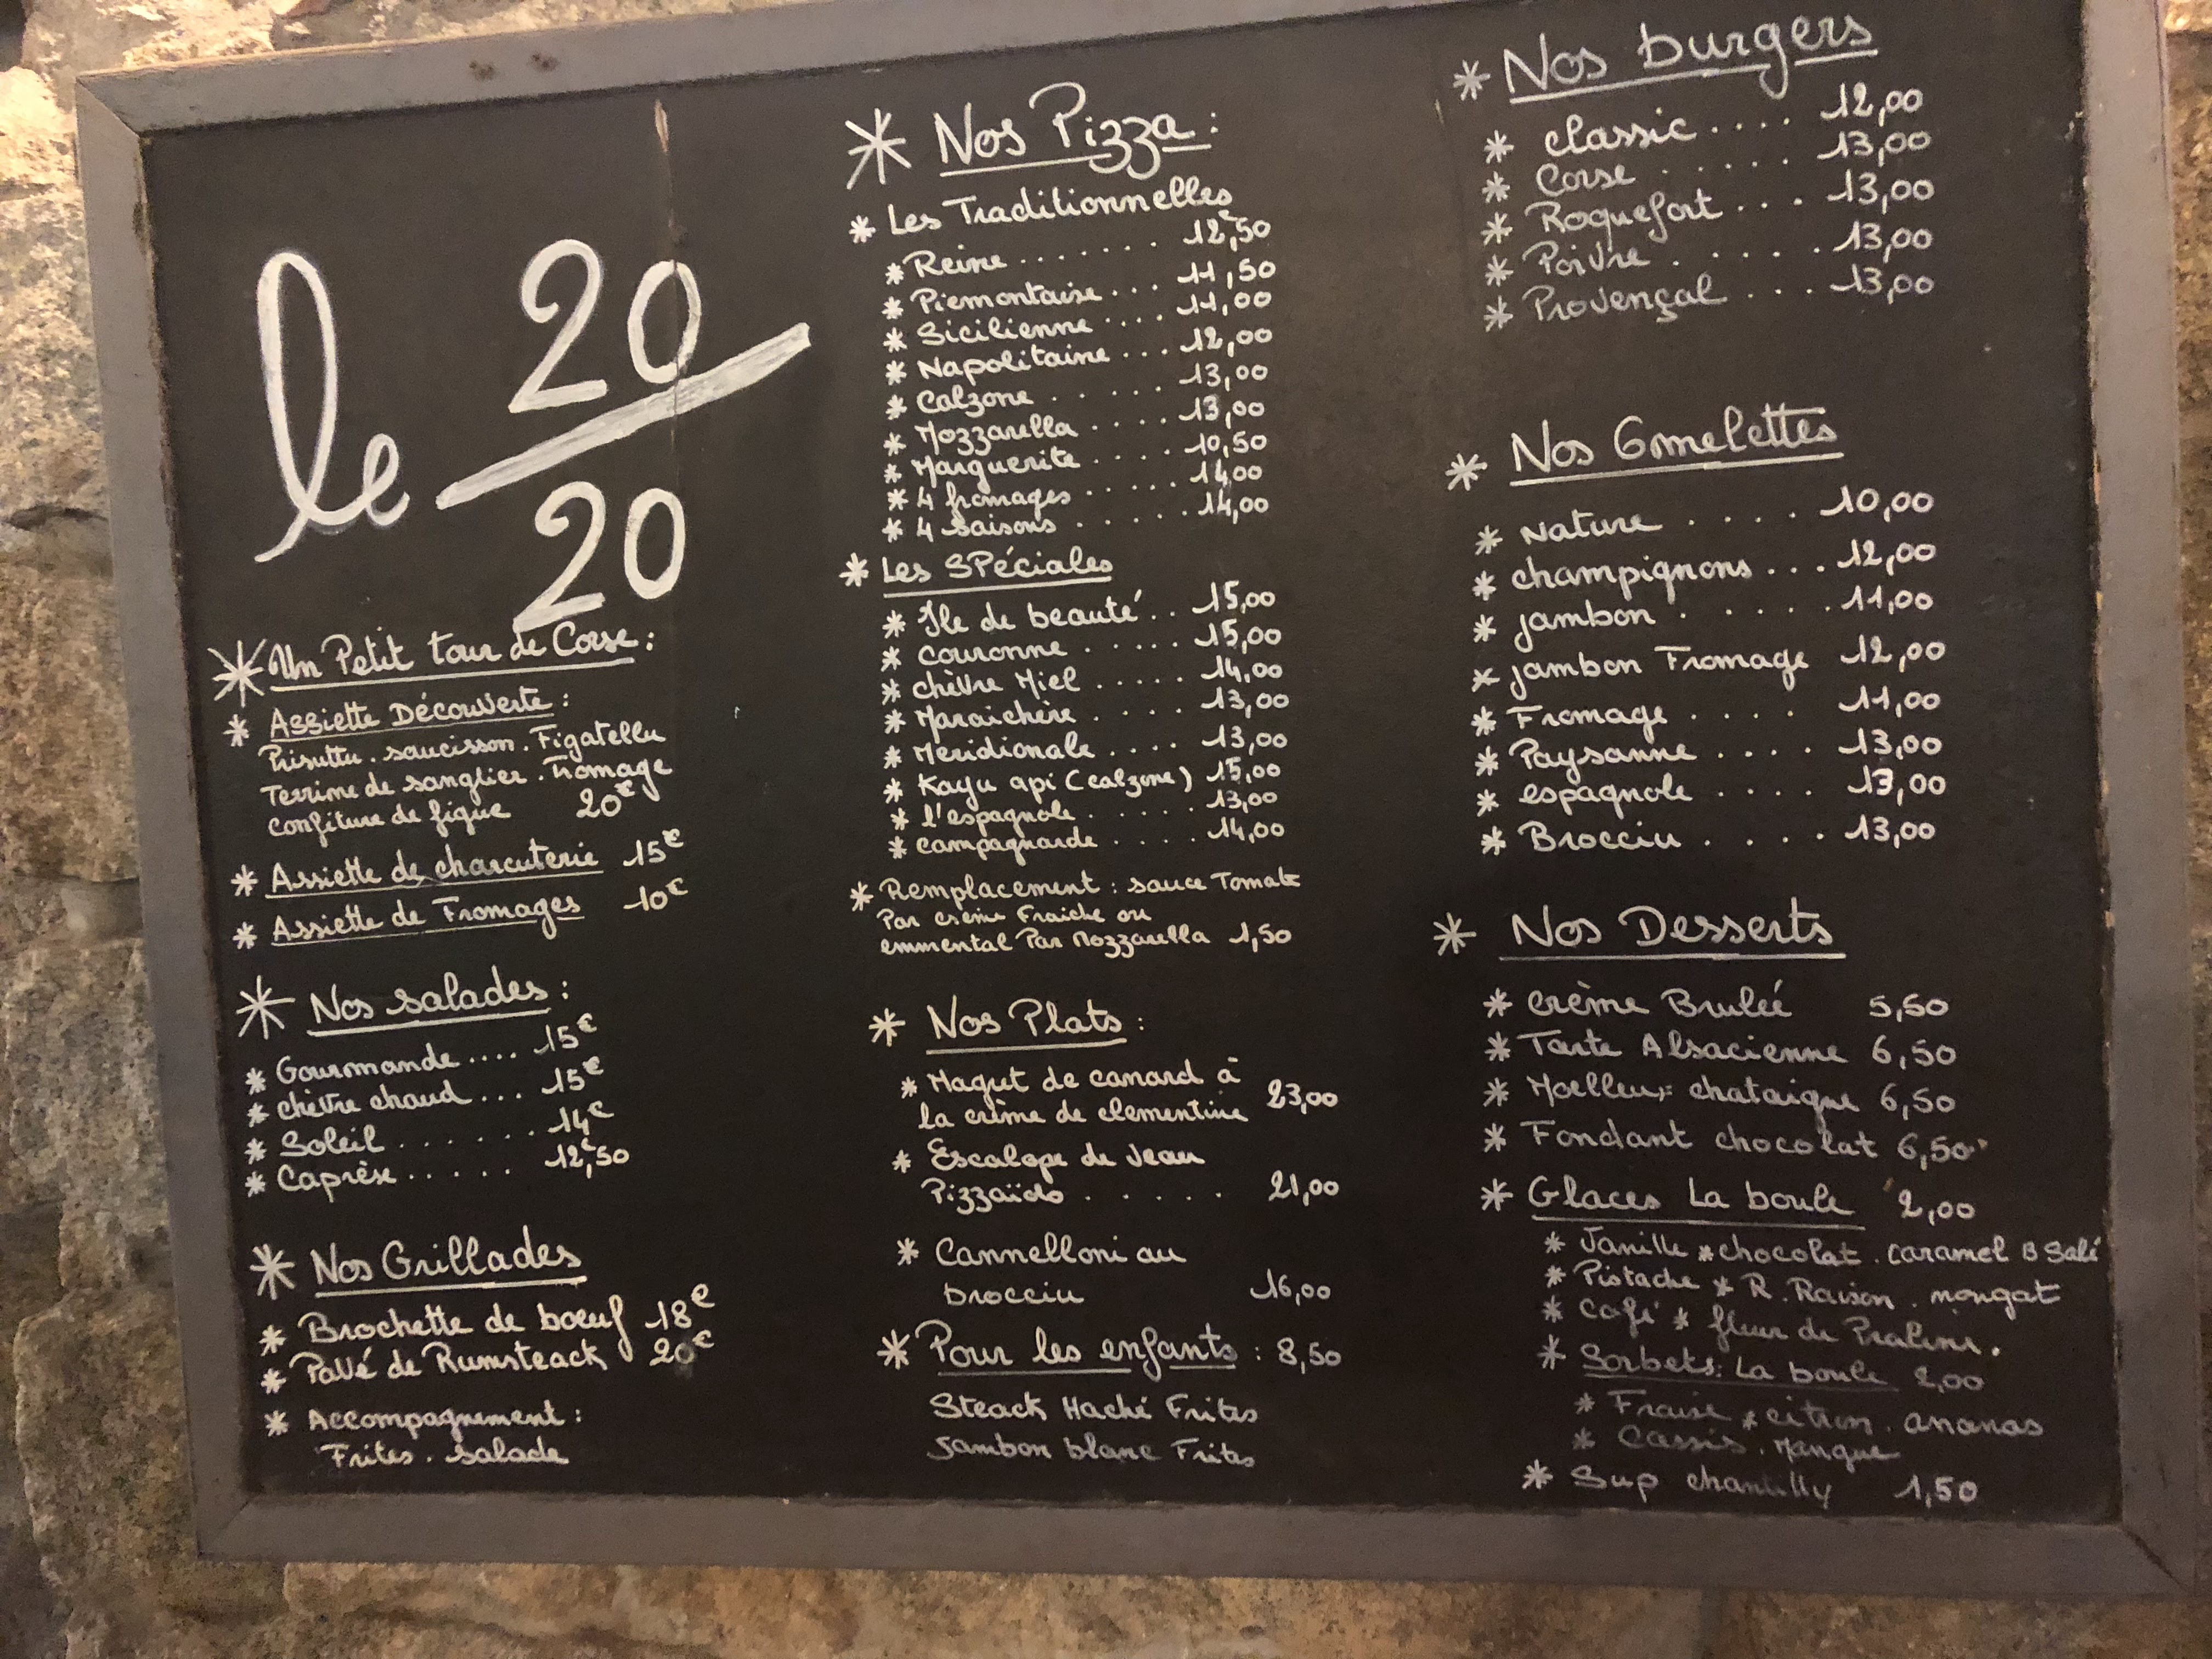 le 20
20
* Un Petit tour de Corse :
* Assiette Découverte :
Prisuttu . saucisson . Figatellu
Terrine de sanglier . Fromage
confiture de figue 20€
* Assiette de charcuterie 15€
* Assiette de Fromages 10€
* Nos salades :
* Gourmande .... 15€
* chèvre chaud ... 15€
* Soleil ....... 14€
* Caprèse ..... 12€,50
* Nos Grillades
* Brochette de boeuf 18€
* Pavé de Rumsteack 20€
* Accompagnement :
Frites . salade
* Nos Pizza :
* Les Traditionnelles
* Reine ...... 12€,50
* Piemontaise ... 11,50
* Sicilienne .... 11,00
* Napolitaine ... 12,00
* Calzone ..... 13,00
* Mozzarella .... 13,00
* Marguerite .... 10,50
* 4 fromages ..... 14,00
* 4 saisons ..... 14,00
* Les SPéciales
* Ile de beauté .. 15,00
* couronne ..... 15,00
* chèvre Miel ..... 14,00
* Maraichère .... 13,00
* Meridionale .... 13,00
* Kayu api (calzone) 15,00
* l'espagnole ...... 13,00
* campagnarde .... 14,00
* Remplacement : sauce Tomate
Par crème Fraiche ou
emmental Par Mozzarella 1,50
* Nos Plats :
* Magret de canard à
la crème de clementine 23,00
* Escalope de veau
Pizzaïolo ..... 21,00
* Cannelloni au
brocciu 16,00
* Pour les enfants : 8,50
Steack Haché Frites
Jambon blanc Frites
* Nos burgers
* classic .... 12,00
* Corse ..... 13,00
* Roquefort ... 13,00
* Poivre ..... 13,00
* Provençal ... 13,00
* Nos Omelettes
* Nature .... 10,00
* champignons ... 12,00
* jambon ..... 11,00
* jambon Fromage 12,00
* Fromage .... 11,00
* Paysanne .... 13,00
* espagnole .... 13,00
* Brocciu .... 13,00
* Nos Desserts
* crème Brulée 5,50
* Tarte Alsacienne 6,50
* Moelleux chataigne 6,50
* Fondant chocolat 6,50
* Glaces La boule 2,00
* Vanille * chocolat . caramel B Salé
* Pistache * R. Raison . nougat
* Café * fleur de Pralins .
* Sorbets : La boule 2,00
* Fraise * citron . ananas
* Cassis . Mangue
* Sup chantilly 1,50